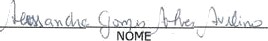 Alessandra Gomes Alves Avelino
NOME